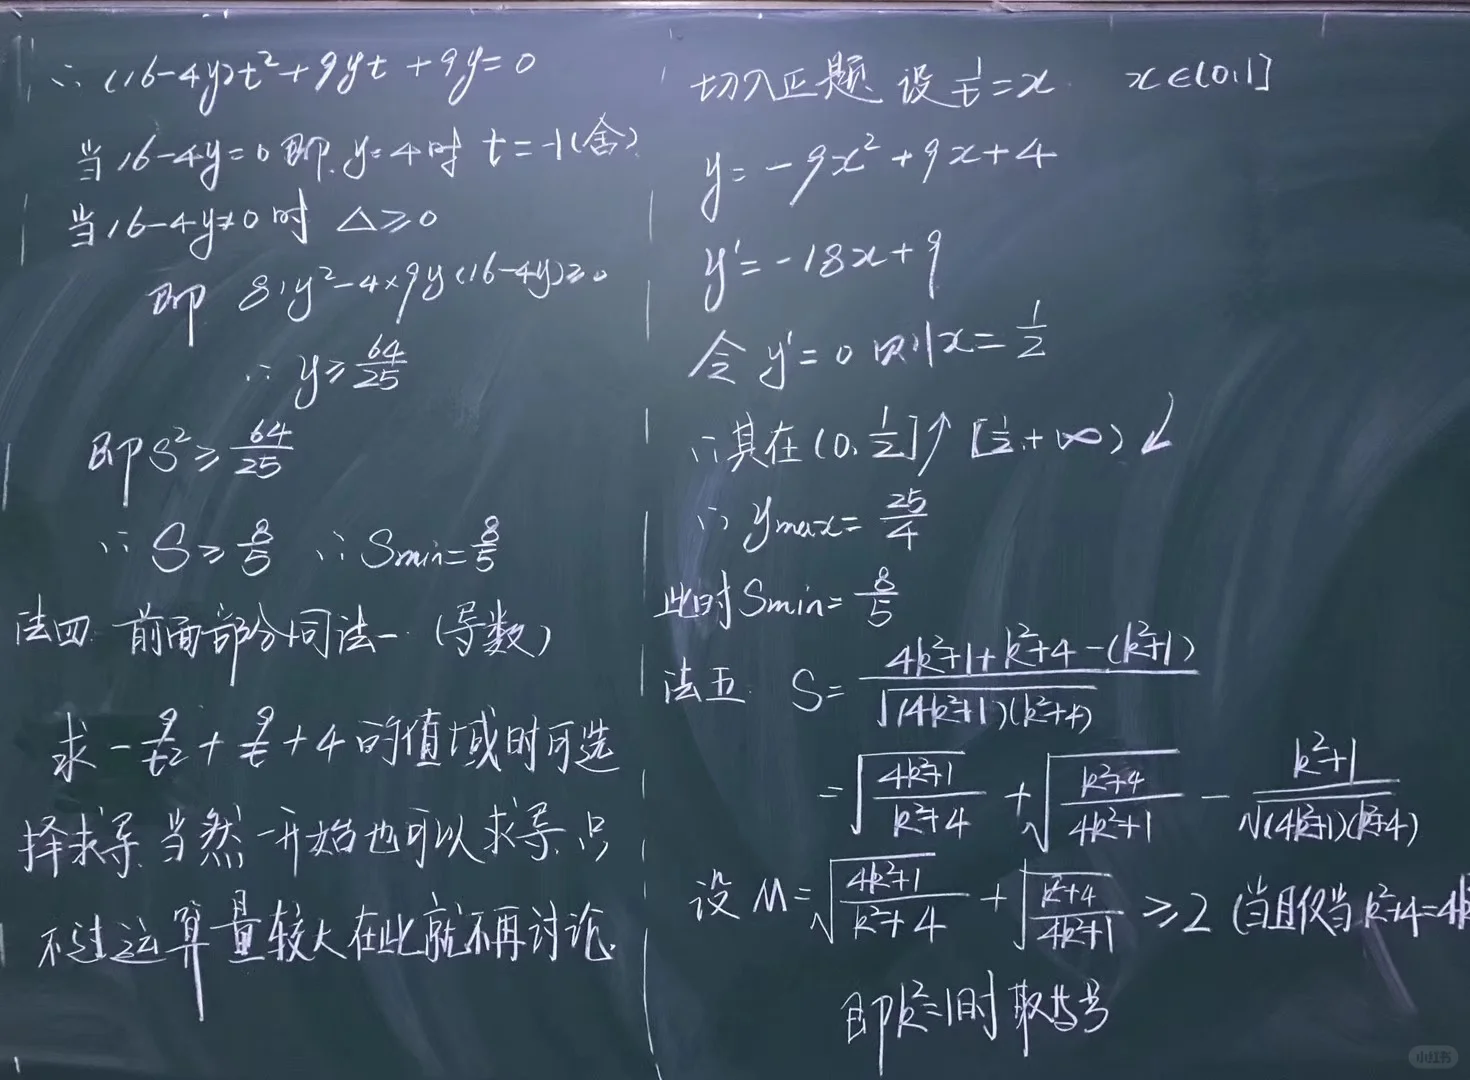 ∴ (16-4y)t²+9yt+9y=0
当16-4y=0即y=4时 t=-1(舍)
当16-4y≠0时 △≥0
即 81y²-4×9y(16-4y)≥0
∴ y≥64/25
即S²≥64/25
∴ S≥8/5 ∴ Smin=8/5
法四 前面部分同法一 (导数)
求 -9/t²+9/t+4的值域时可选
择求导 当然一开始也可以求导 只
不过运算量较大在此就不再讨论.
切入正题 设1/t=x x∈(0,1]
y=-9x²+9x+4
y'=-18x+9
令y'=0则x=1/2
∴其在(0,1/2]↑ [1/2,+∞)↙
∴ ymax=25/4
此时Smin=8/5
法五 S=(4k²+1+k²+4-(k²+1))/√((4k²+1)(k²+4))
=√((4k²+1)/(k²+4))+√((k²+4)/(4k²+1))-(k²+1)/√((4k²+1)(k²+4))
设M=√((4k²+1)/(k²+4))+√((k²+4)/(4k²+1))≥2 (当且仅当k²+4=4k
即k²=1时取等号
小红书